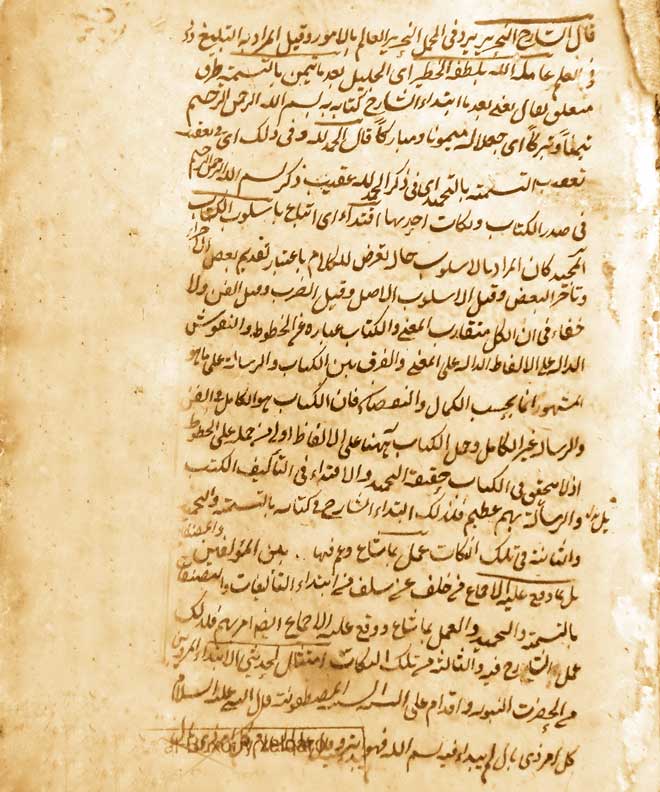 قال الشارح النحرير في المجمل النحرير العالم بالامور وقيل المراد به البليغ في
العلم عامله الله بلطفه الخطير اي الجليل بعد ما تيمن بالتسمية ظرف
متعلق بقال يعني بعد ما ابتداء الشارح كتابه ببسم الله الرحمن الرحيم
تيمنا وتبركا اي جعلا له ميمونا ومباركا قال الحمد لله وفي ذلك اي في تعقيب
تعقيب التسمية بالتحميد اي في ذكر الحمد لله عقيب ذكر بسم الله الرحمن الرحيم
في صدر الكتاب ونكات احديها اقتداء اي اتباع باسلوب الكتاب
المجيد كان المراد بالاسلوب حال تعرض للكلام باعتبار تقديم بعض الاجزاء
وتأخر البعض وقيل الاسلوب الاصل وقيل الضرب وقيل الفن ولا
خفاء في ان الكل متقارب المعنى والكتاب عبارة عن الخطوط والنقوش
الدالة على الالفاظ الدالة على المعنى والفرق بين الكتاب والرسالة على ما هو
المشهور انما بحسب الكمال والنقصان فان الكتاب هو الكامل في الفن
والرسالة غير الكامل وحمل الكتاب ههنا على الالفاظ اولى من حمله على الخطوط
اذ لا يتحقق في الكتاب حقيقة التحميد والاقتداء في التأليف الكتب
والرسالة بهم عظيم فلذلك ابتداء الشارح في كتابه بالتسمية والتحميد
والثانية في تلك النكات عمل بما شاع بين المؤلفين والمصنفين
بل بما وقع عليه الاجماع في خلف عن سلف في ابتداء التأليفات والتصنيفات
بالتسمية والتحميد والعمل بما شاع ووقع عليه الاجماع ايضا امر مهم فلذلك
عمل الشارح فيه والثالثة في تلك النكات امتثال لحديثي الابتداء المرويين
من الحضرت النبوية واقدام على السنة المصطفوية قال النبي عليه السلام
كل امر ذي بال لم يبداء فيه بسم الله فهو ابتر